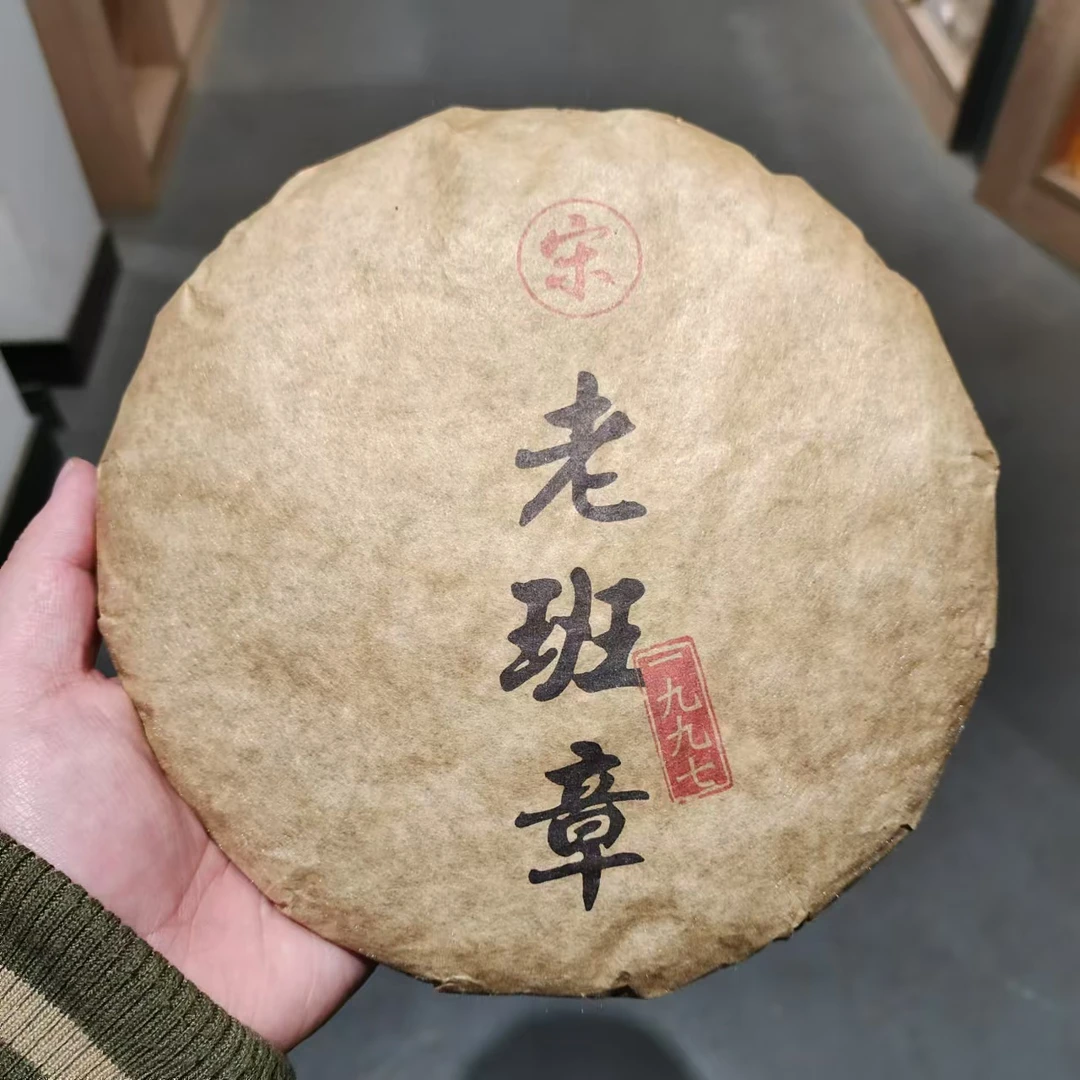 宋
老班章
一九九七